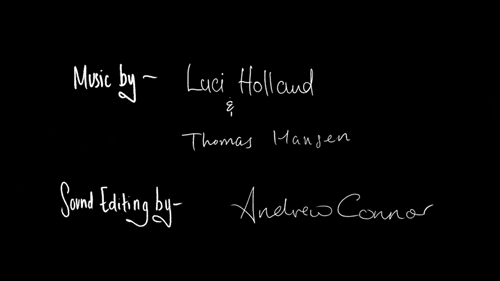 Music by ~ Luci Holland
&
Thomas Hansen
Sound Editing by ~ Andrew Connor